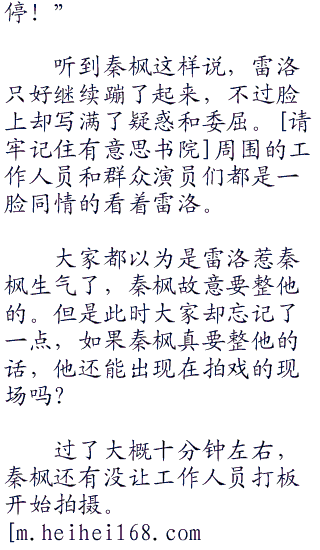 停！”
听到秦枫这样说，雷洛
只好继续蹦了起来，不过脸
上却写满了疑惑和委屈。[请
牢记住有意思书院]周围的工
作人员和群众演员们都是一
脸同情的看着雷洛。
大家都以为是雷洛惹秦
枫生气了，秦枫故意要整他
的。但是此时大家却忘记了
一点，如果秦枫真要整他的
话，他还能出现在拍戏的现
场吗？
过了大概十分钟左右，
秦枫还有没让工作人员打板
开始拍摄。
[m.heihei168.com